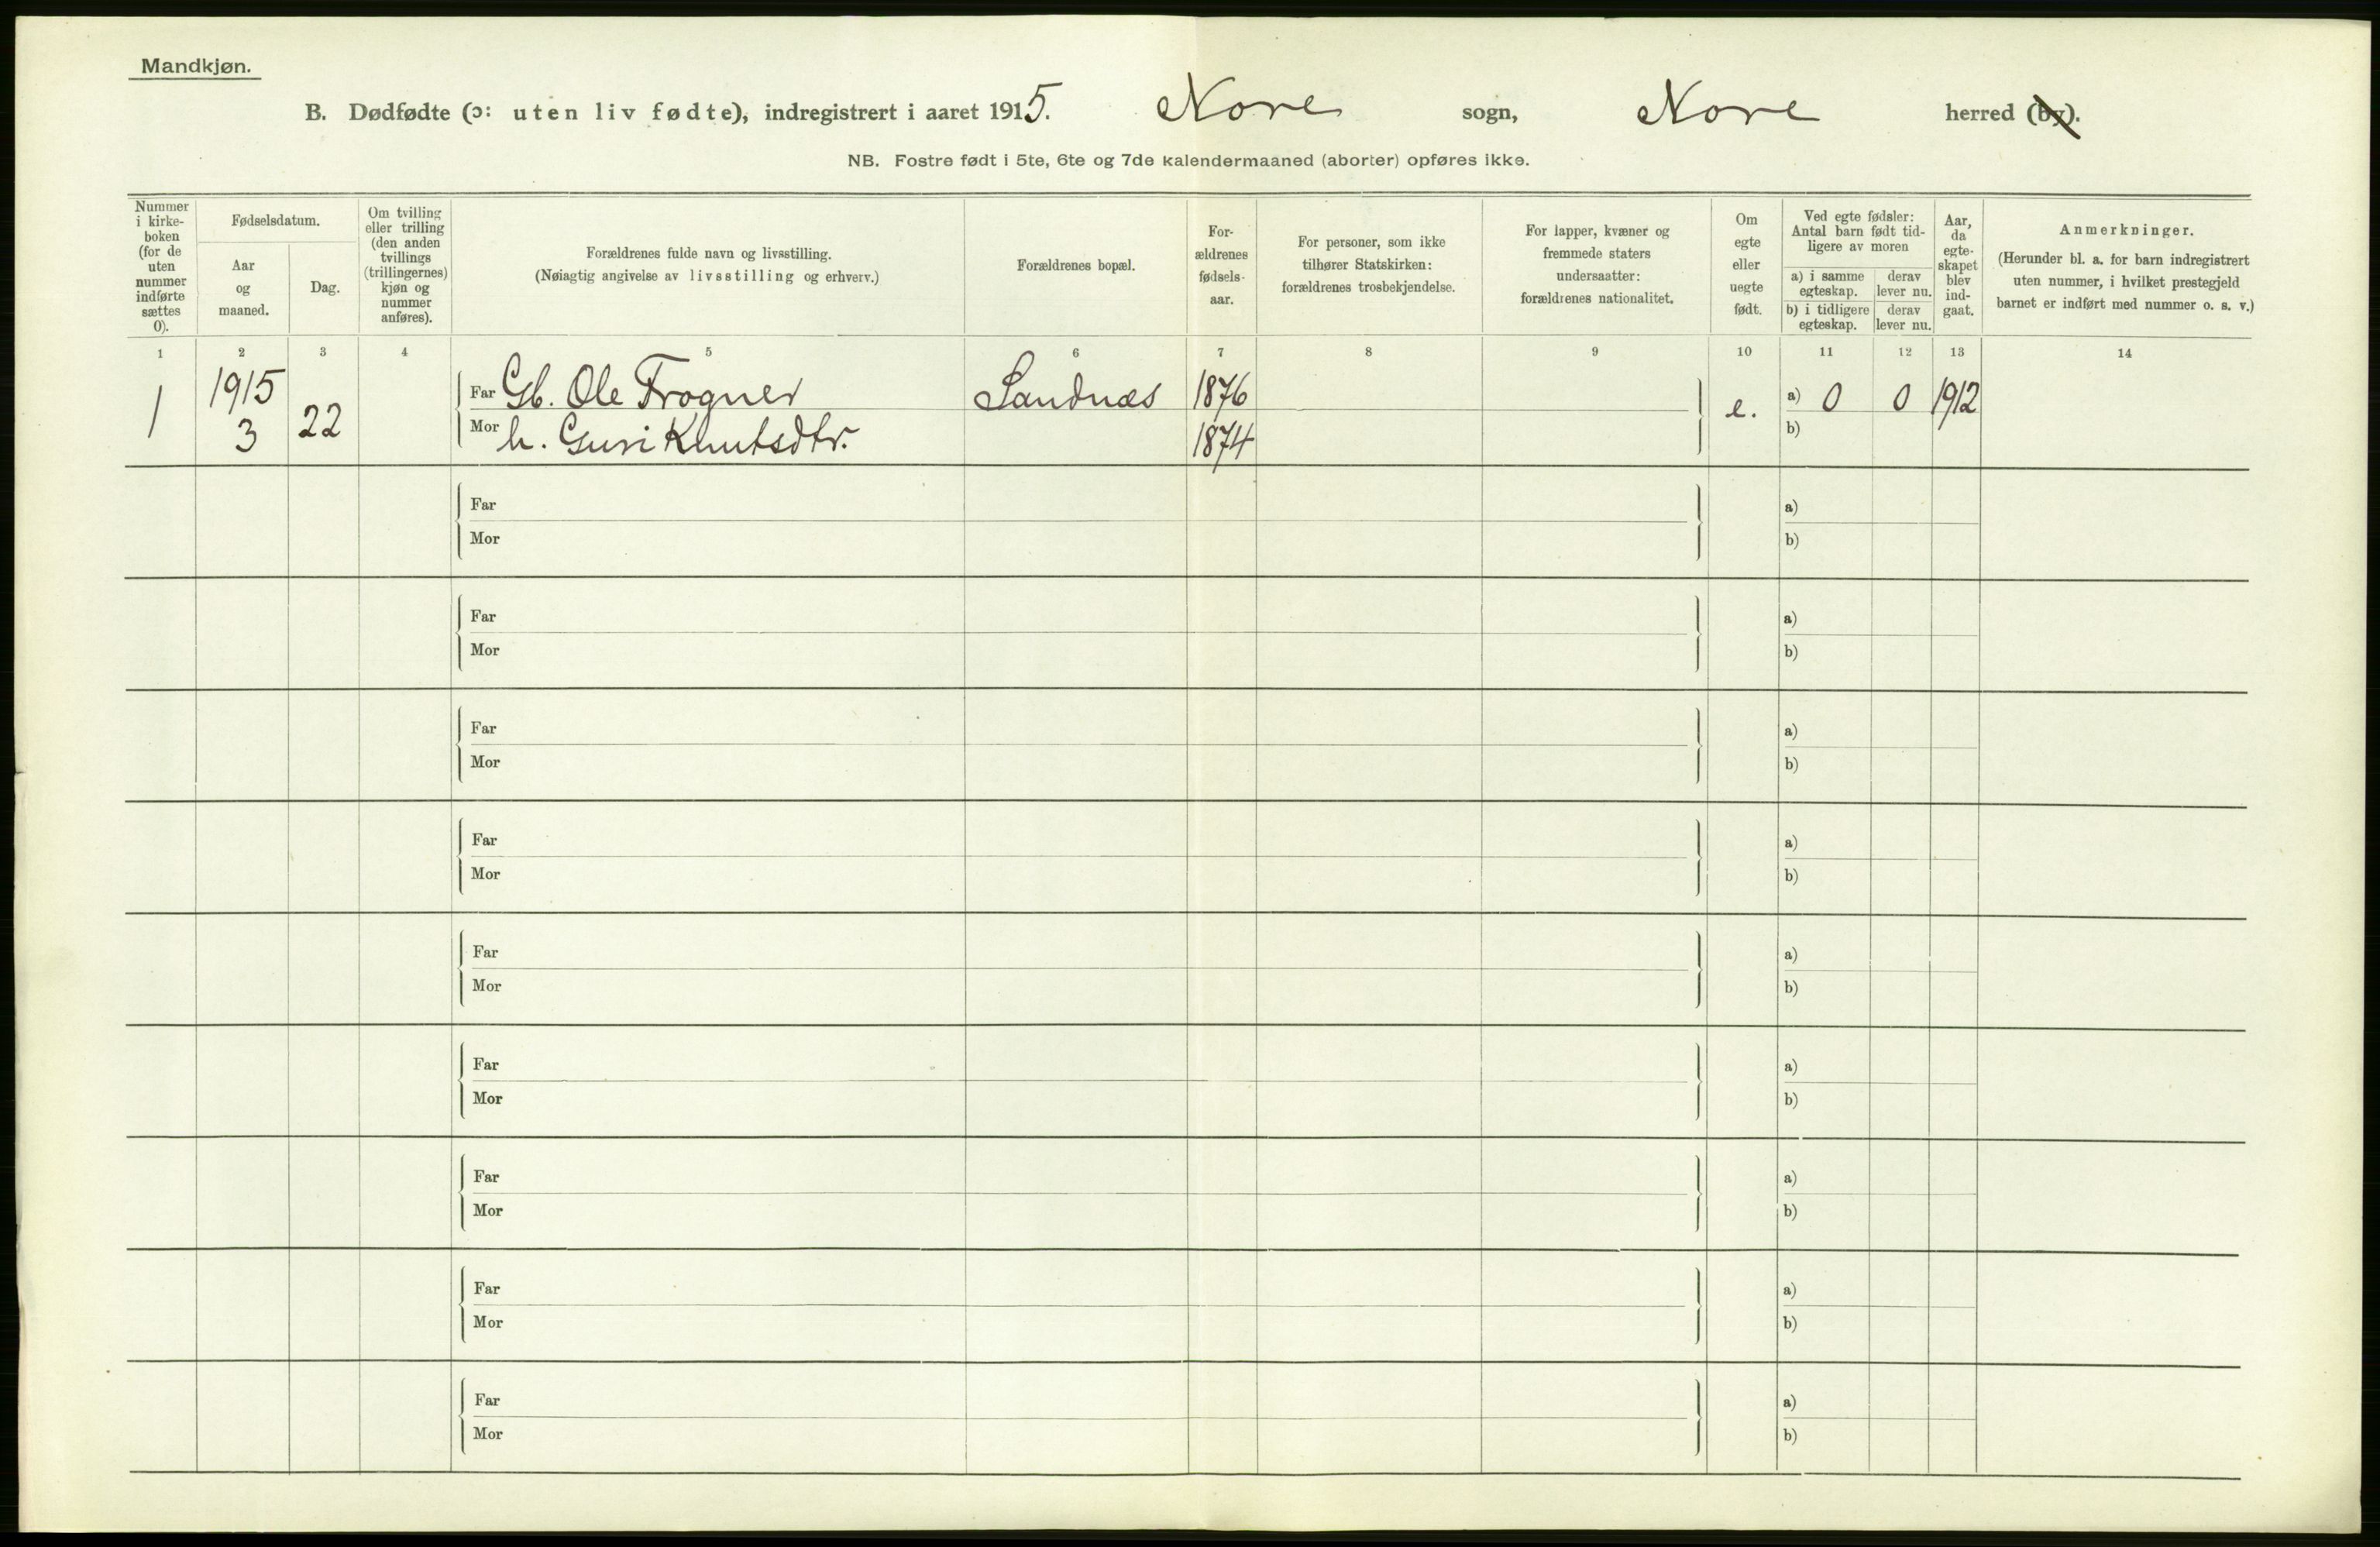 Mandkjøn.
B. Dødfødte (ɔ: uten liv fødte), indregistrert i aaret 1915. Nore sogn, Nore herred (by).
NB. Fostre født i 5te, 6te og 7de kalendermaaned (aborter) opføres ikke.
Nummer i kirke-boken (for de uten nummer indførte sættes 0).
Fødselsdatum.
Aar og maaned.
Dag.
Om tvilling eller trilling (den anden tvillings (trillingernes) kjøn og nummer anføres).
Forældrenes fulde navn og livsstilling.
(Nøiagtig angivelse av livsstilling og erhverv.)
Forældrenes bopæl.
For-ældrenes fødsels-aar.
For personer, som ikke tilhører Statskirken: forældrenes trosbekjendelse.
For lapper, kvæner og fremmede staters undersaatter: forældrenes nationalitet.
Om egte eller uegte født.
Ved egte fødsler: Antal barn født tid-ligere av moren
a) i samme egteskap.
derav lever nu.
b) i tidligere egteskap.
derav lever nu.
Aar, da egte-skapet blev ind-gaat.
Anmerkninger.
(Herunder bl. a. for barn indregistrert uten nummer, i hvilket prestegjeld barnet er indført med nummer o. s. v.)
1 2 3 4 5 6 7 8 9 10 11 12 13 14
1 1915 3 22
Far Gb. Ole Trogner Sandnæs 1876 e. a) 0 0 1912
Mor h. Guri Knutsdtr. 1874 b)
Far a)
Mor b)
Far a)
Mor b)
Far a)
Mor b)
Far a)
Mor b)
Far a)
Mor b)
Far a)
Mor b)
Far a)
Mor b)
Far a)
Mor b)
Far a)
Mor b)